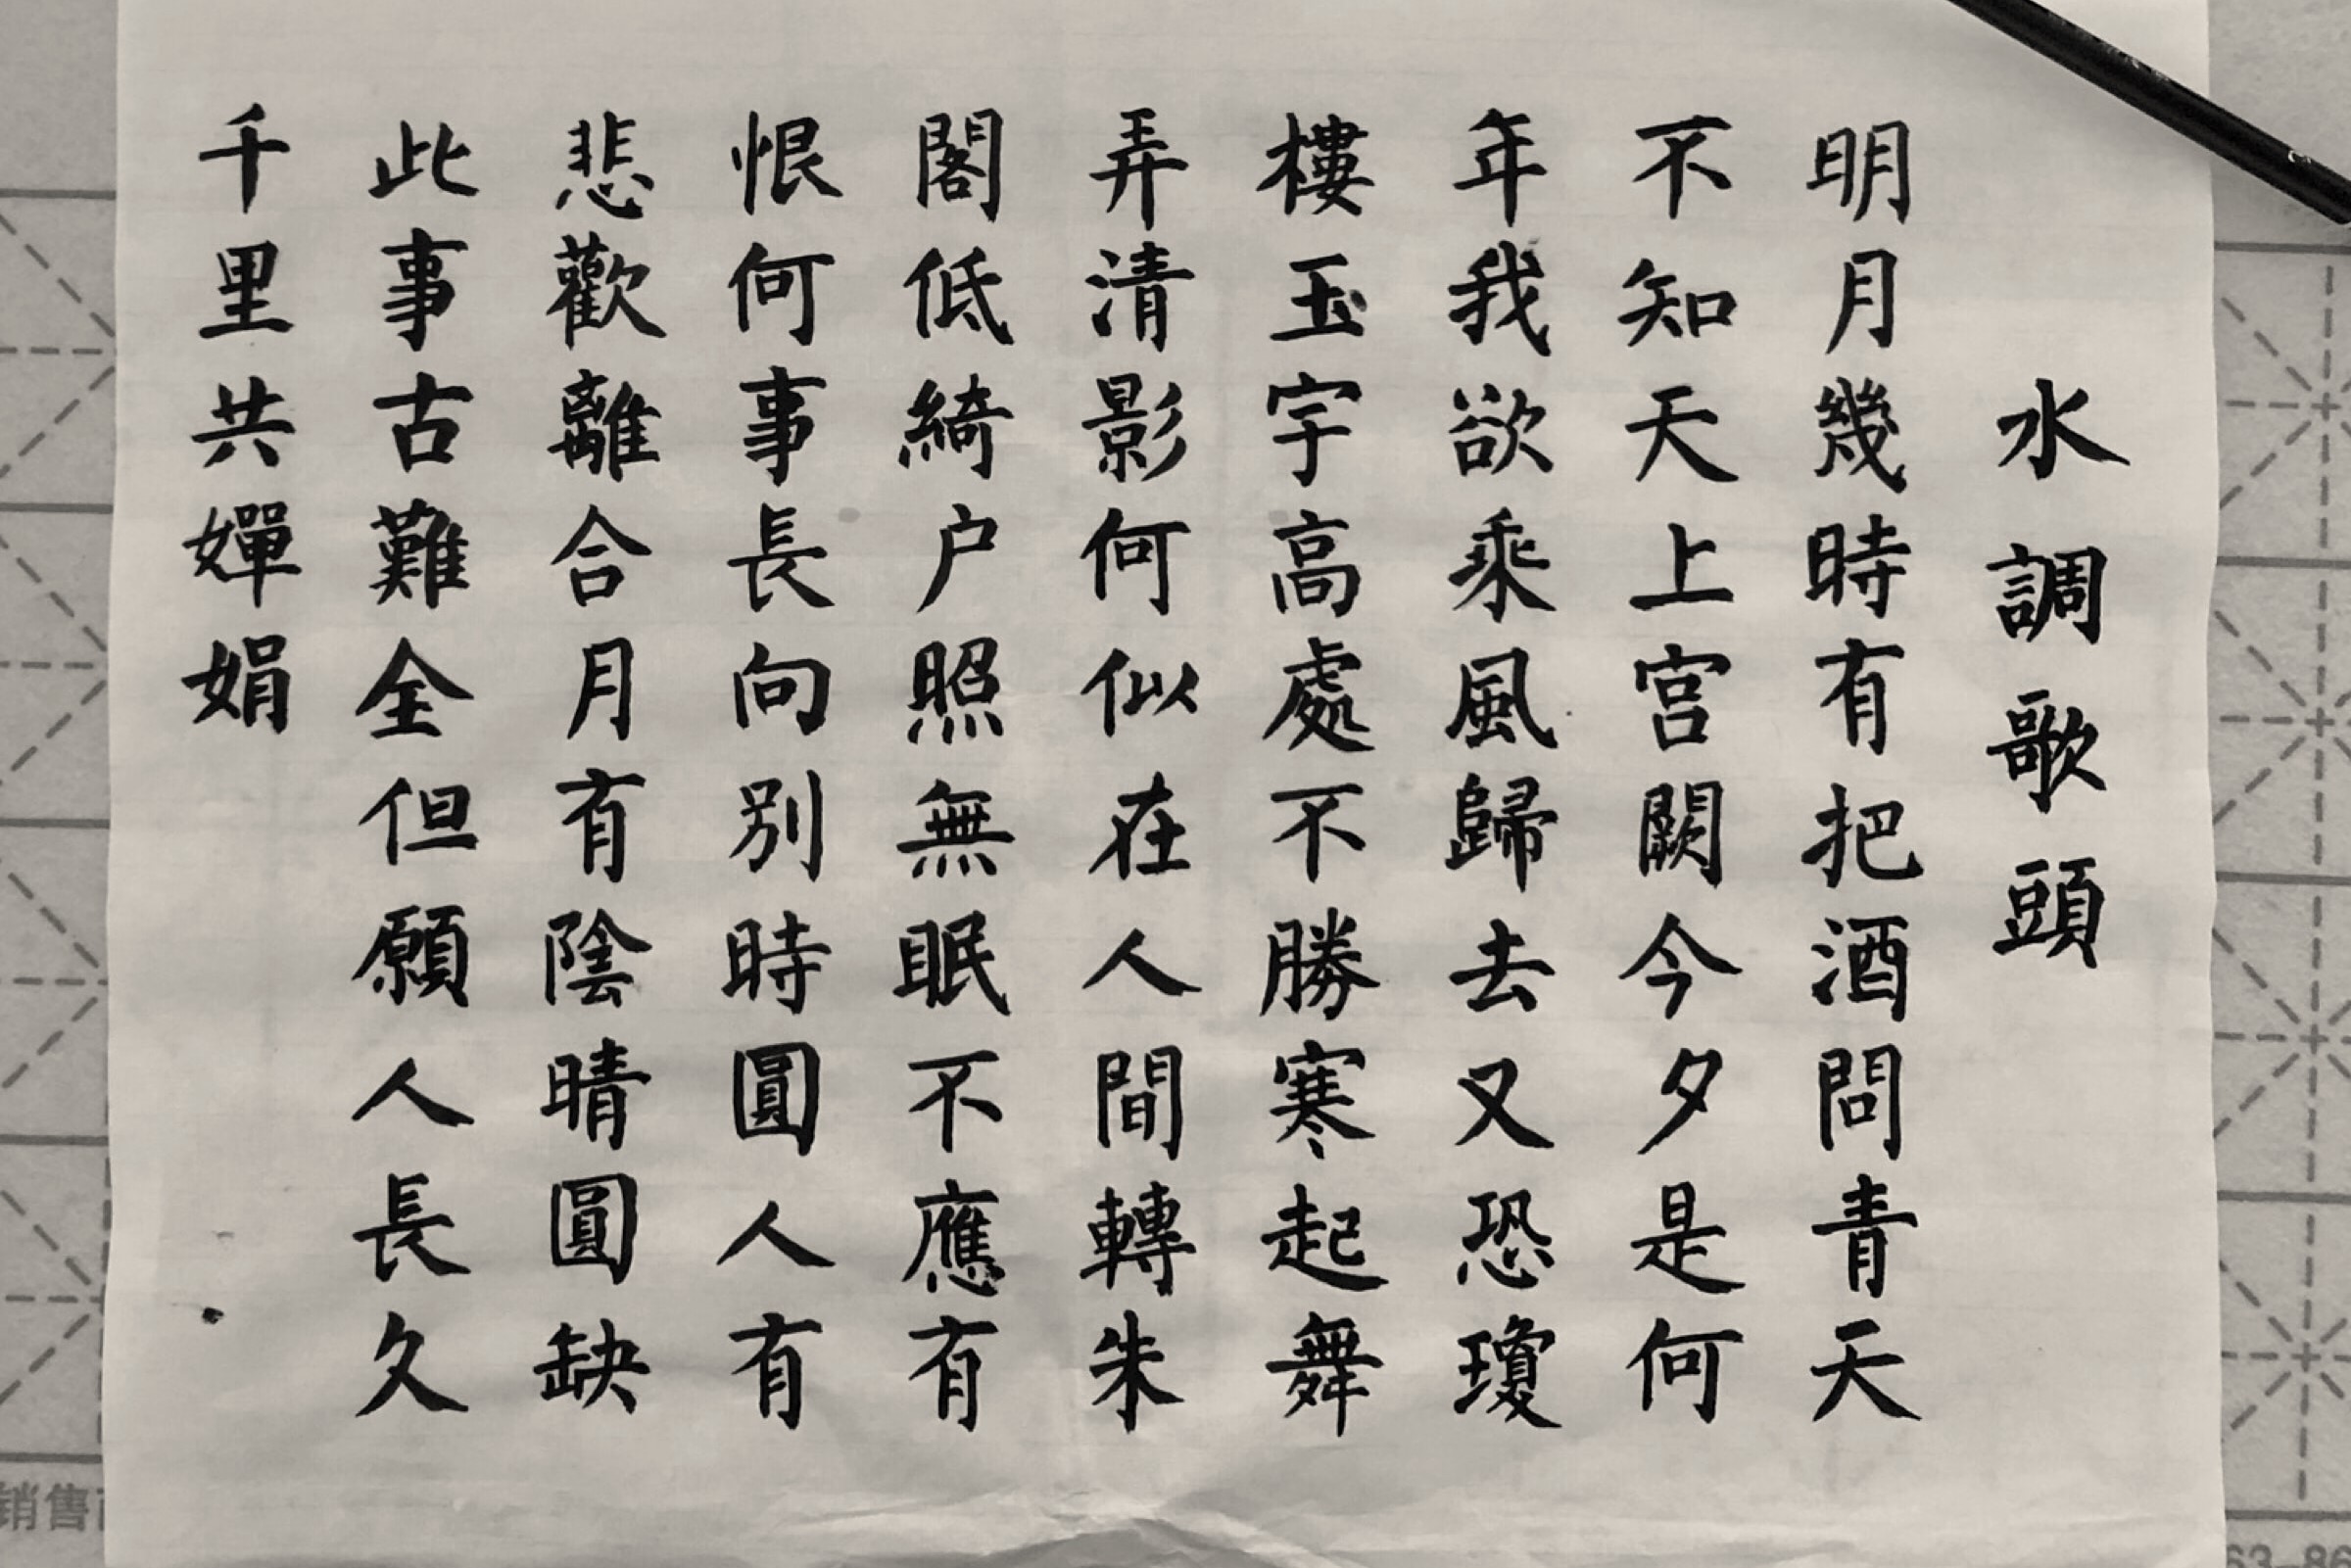 水調歌頭
明月幾時有把酒問青天
不知天上宮闕今夕是何
年我欲乘風歸去又恐瓊
樓玉宇高處不勝寒起舞
弄清影何似在人間轉朱
閣低綺户照無眠不應有
恨何事長向別時圓人有
悲歡離合月有陰晴圓缺
此事古難全但願人長久
千里共嬋娟
销售